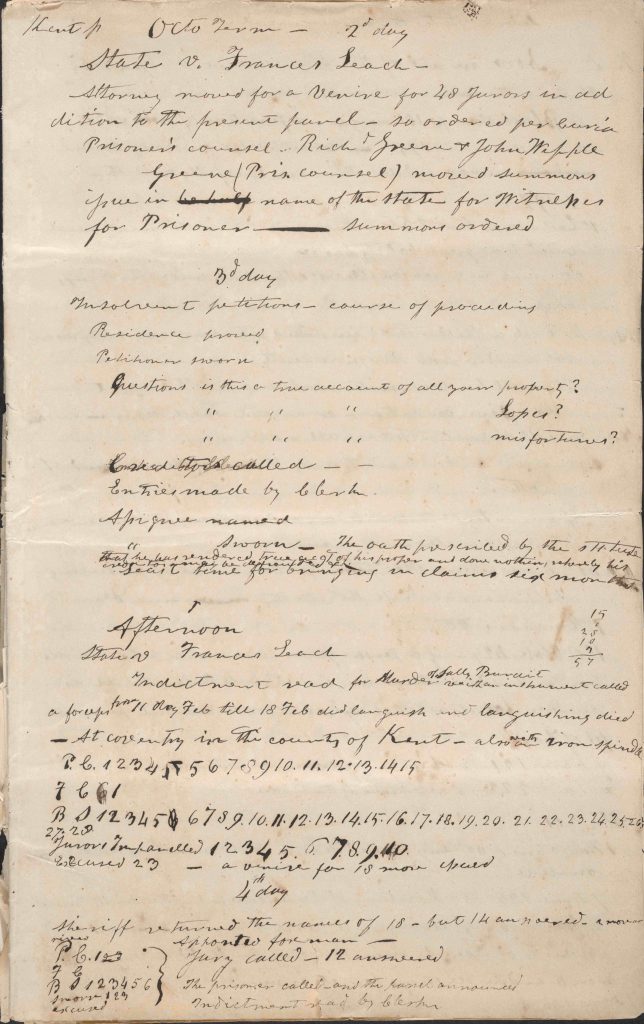 Kent Octo Term – 2d day
State v. Frances Leach –
Attorney moved for a Venire for 48 Jurors in ad
dition to the present panel – so ordered per curia
Prisoner's counsel – Richd Greene & John Wipple
Greene (Pris counsel) moved summons
issue in be half name of the State for Witnesses
for Prisoner ——— summons ordered
3d day
Insolvent petitions – course of proceeding
Residence proved
Petitioner sworn
Questions is this a true account of all your property?
" " " Losses?
" " " misfortunes?
Creditors called – –
Entries made by Clerk.
Assignee named
" Sworn – The oath prescribed by the statute
that he has rendered true acct of his proper and done nothing whereby his
Least time for bringing in claims six months
Afternoon
15
28
10
57
State v Frances Leach
Indictment read for Murder of Sally Burdit with an instrument called
a forceps from 11 day Feb till 18 Feb did languish and languishing died
– At Coventry in the county of Kent – also with iron spindle
P. C. 1 2 3 4 5 6 7 8 9 10. 11. 12. 13. 14 15
F C 1
B S 1 2 3 4 5 6 7 8 9. 10. 11. 12. 13. 14. 15. 16. 17. 18. 19. 20. 21. 22. 23. 24. 25. 26
27. 28
Jurors Impanelled 1 2 3 4 5. 7. 8. 9. 10
Excused 23 – a venire for 18 more issued
4th day
Sheriff returned the names of 18 – but 14 answered –
Appointed foreman –
P. C. 1 2 3 Jury called – 12 answered
F C
B S 1 2 3 4 5 6 The prisoner called – and the panel announced
Sworn 1 2 3
excused Indictment read by Clerk